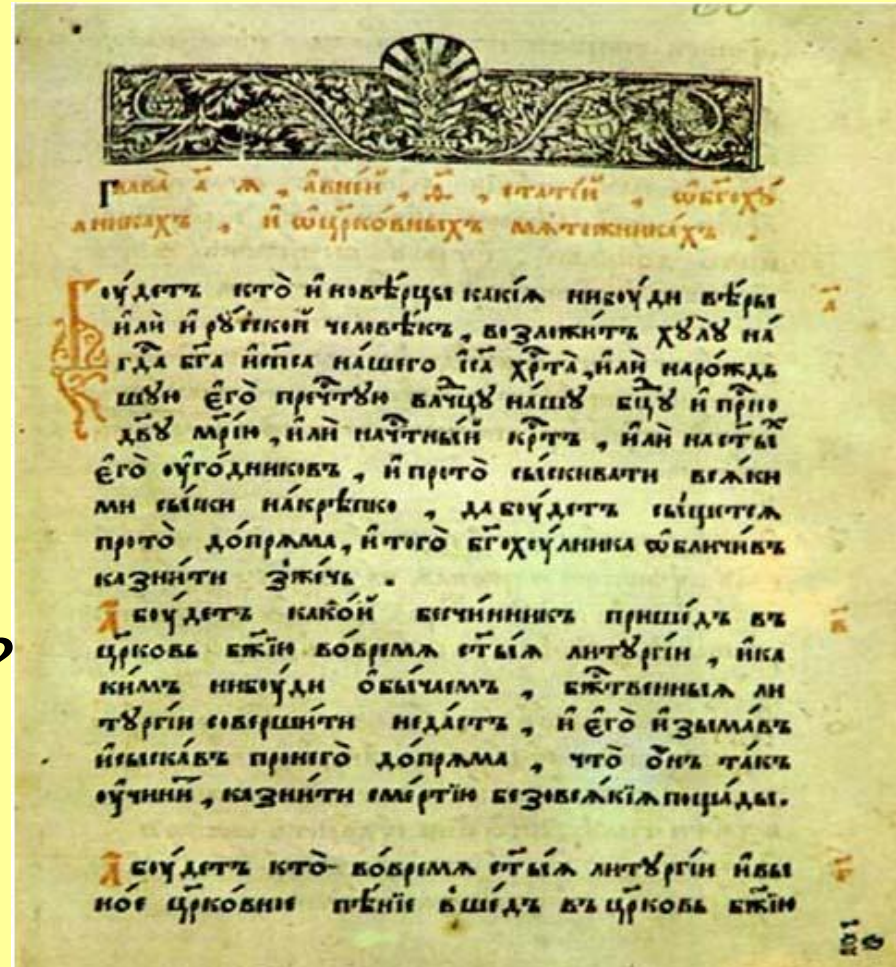 Глава҄ а҃ я , а҆вне́й , ѳ҃ , стате́й , ѡ҆бг҃охꙋ́
лникахъ , и҆ ѡ҆цр҃ко́вныхъ мѧте́жника́хъ .
Боу́детъ кто̀ и҆новѣ́рцы какі́ѧ нибоу́ди вѣ́ры
и҆лѝ и҆ рꙋ́сской человѣ́къ , возложи́тъ хꙋлꙋ̀ на́
гдⷭ҇а бг҃а и҆сп҃са на́шего і҆са҃ хрⷭ҇та̀ , и҆лѝ наро́ждь
шꙋю є҆го̀ преч҇тꙋю влⷣчцꙋ на́шꙋ бц҃ꙋ и҆ прⷭ҇но
дв҃ꙋ мр҃і́ю , и҆лѝ нач҇тны́й крⷭ҇тъ , и҆лѝ насты҃хъ
є҆го̀ оу҆го́дниковъ , и҆ прото̀ сы́скивати всѧ́ки
ми сы́ски на́крѣпко , дабоу́детъ сы́щетсѧ
прото̀ до́прѧма , и҆того̀ бг҃охоу́лника ѡ҆бличи́въ
казни́ти зже́чь .
А҆ боу́детъ како́й бесчи́нникъ прише́дъ въ
цр҃ковь бж҃ію во́времѧ ст҃ы́ѧ литꙋргі́и , и҆ка
ки́мъ нибоу́ди ѻ҆бы́чаемъ , бжⷭ҇твенныѧ ли
тꙋргі́и соверши́ти неда́стъ , и҆ є҆го̀ и҆зыма́въ
и҆сыска́въ пронего̀ до́прѧма , что̀ ѻ҆нъ та́къ
оу҆чини́т , казни́ти сме́ртію безовсѧ́кіѧ поща́ды .
А҆ боу́детъ кто̀ во́времѧ ст҃ы́ѧ литꙋргі́и и҆вы
но́е цр҃ко́вное пѣ́нїе вше́дъ въ цр҃ковь бж҃їю